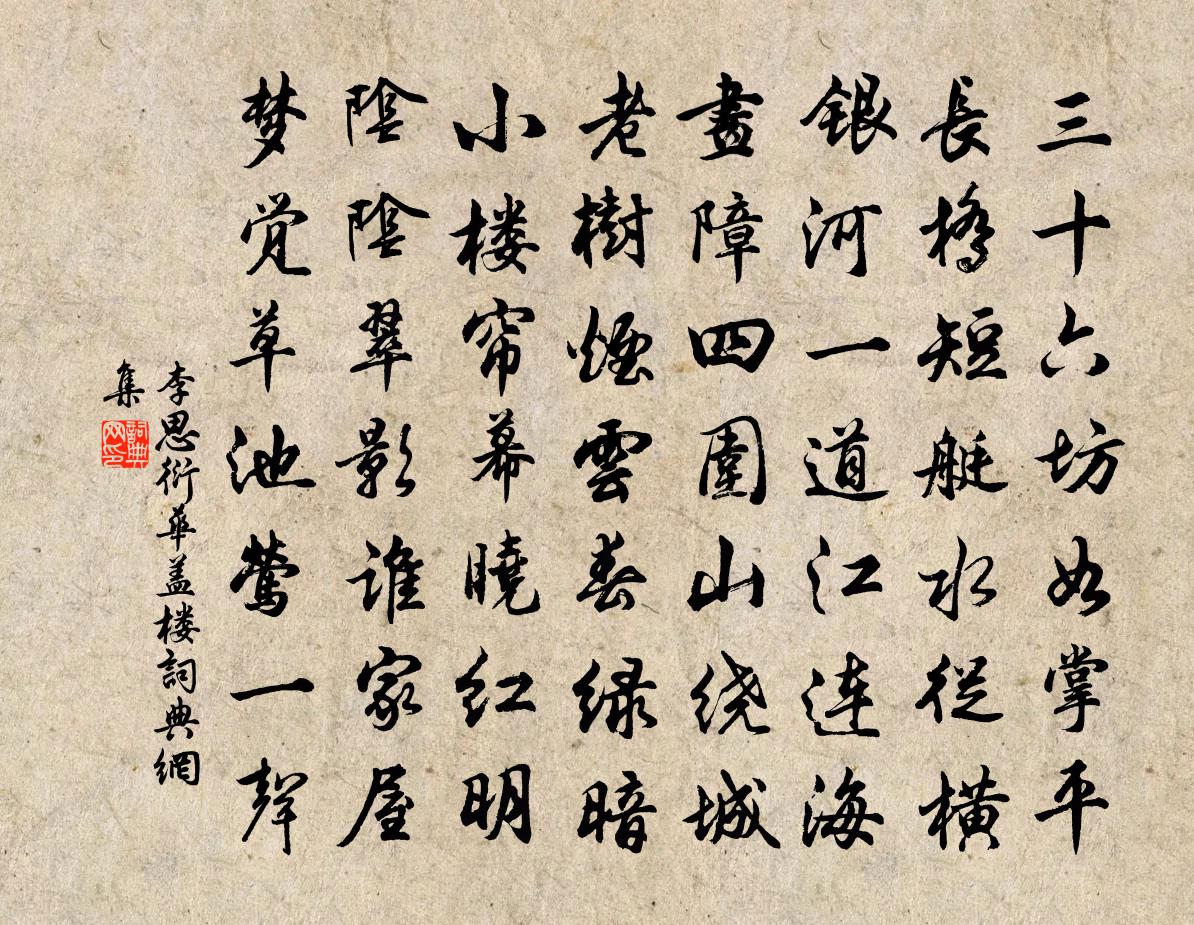 三十六坊如掌平
長橋短艇水從横
銀河一道江连海
畫障四圍山绕城
老樹煙雲春绿暗
小楼帘幕曉红明
陰陰翠影谁家屋
梦觉草池莺一聲
李思衍華盖楼詞典網
集
詞典
网印